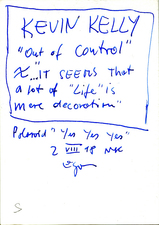 KEVIN KELLY
"Out of Control"
"...IT SEEMS that
a lot of "Life" is
mere decoration"
Polaroid "Yes Yes Yes"
2 VIII 18 NYC
S